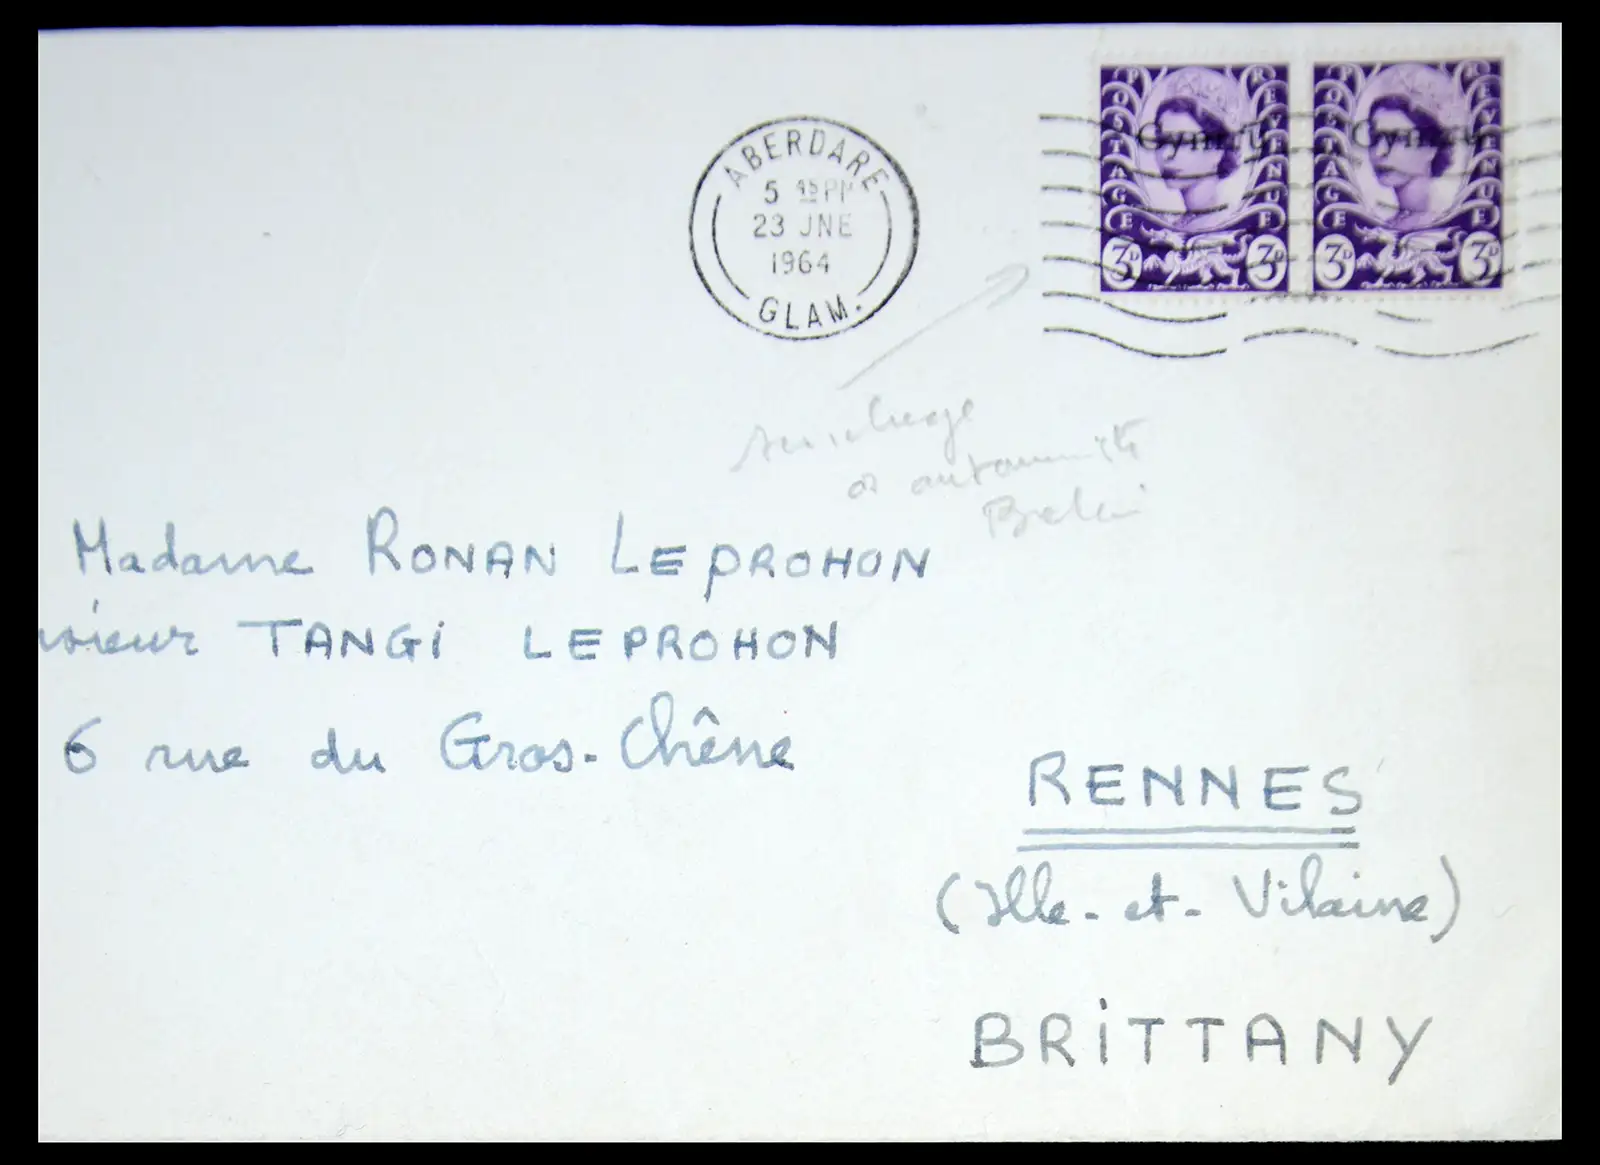 POSTAGE REVENUE POSTAGE REVENUE
Cymru Cymru
3D 3D 3D 3D
ABERDARE
5 45 PM
23 JNE
1964
GLAM.
surcharge
Madame RONAN LEPROHON
sieur TANGI LEPROHON
6 rue du Gros-Chêne
RENNES
(Ille-et-Vilaine)
BRITTANY